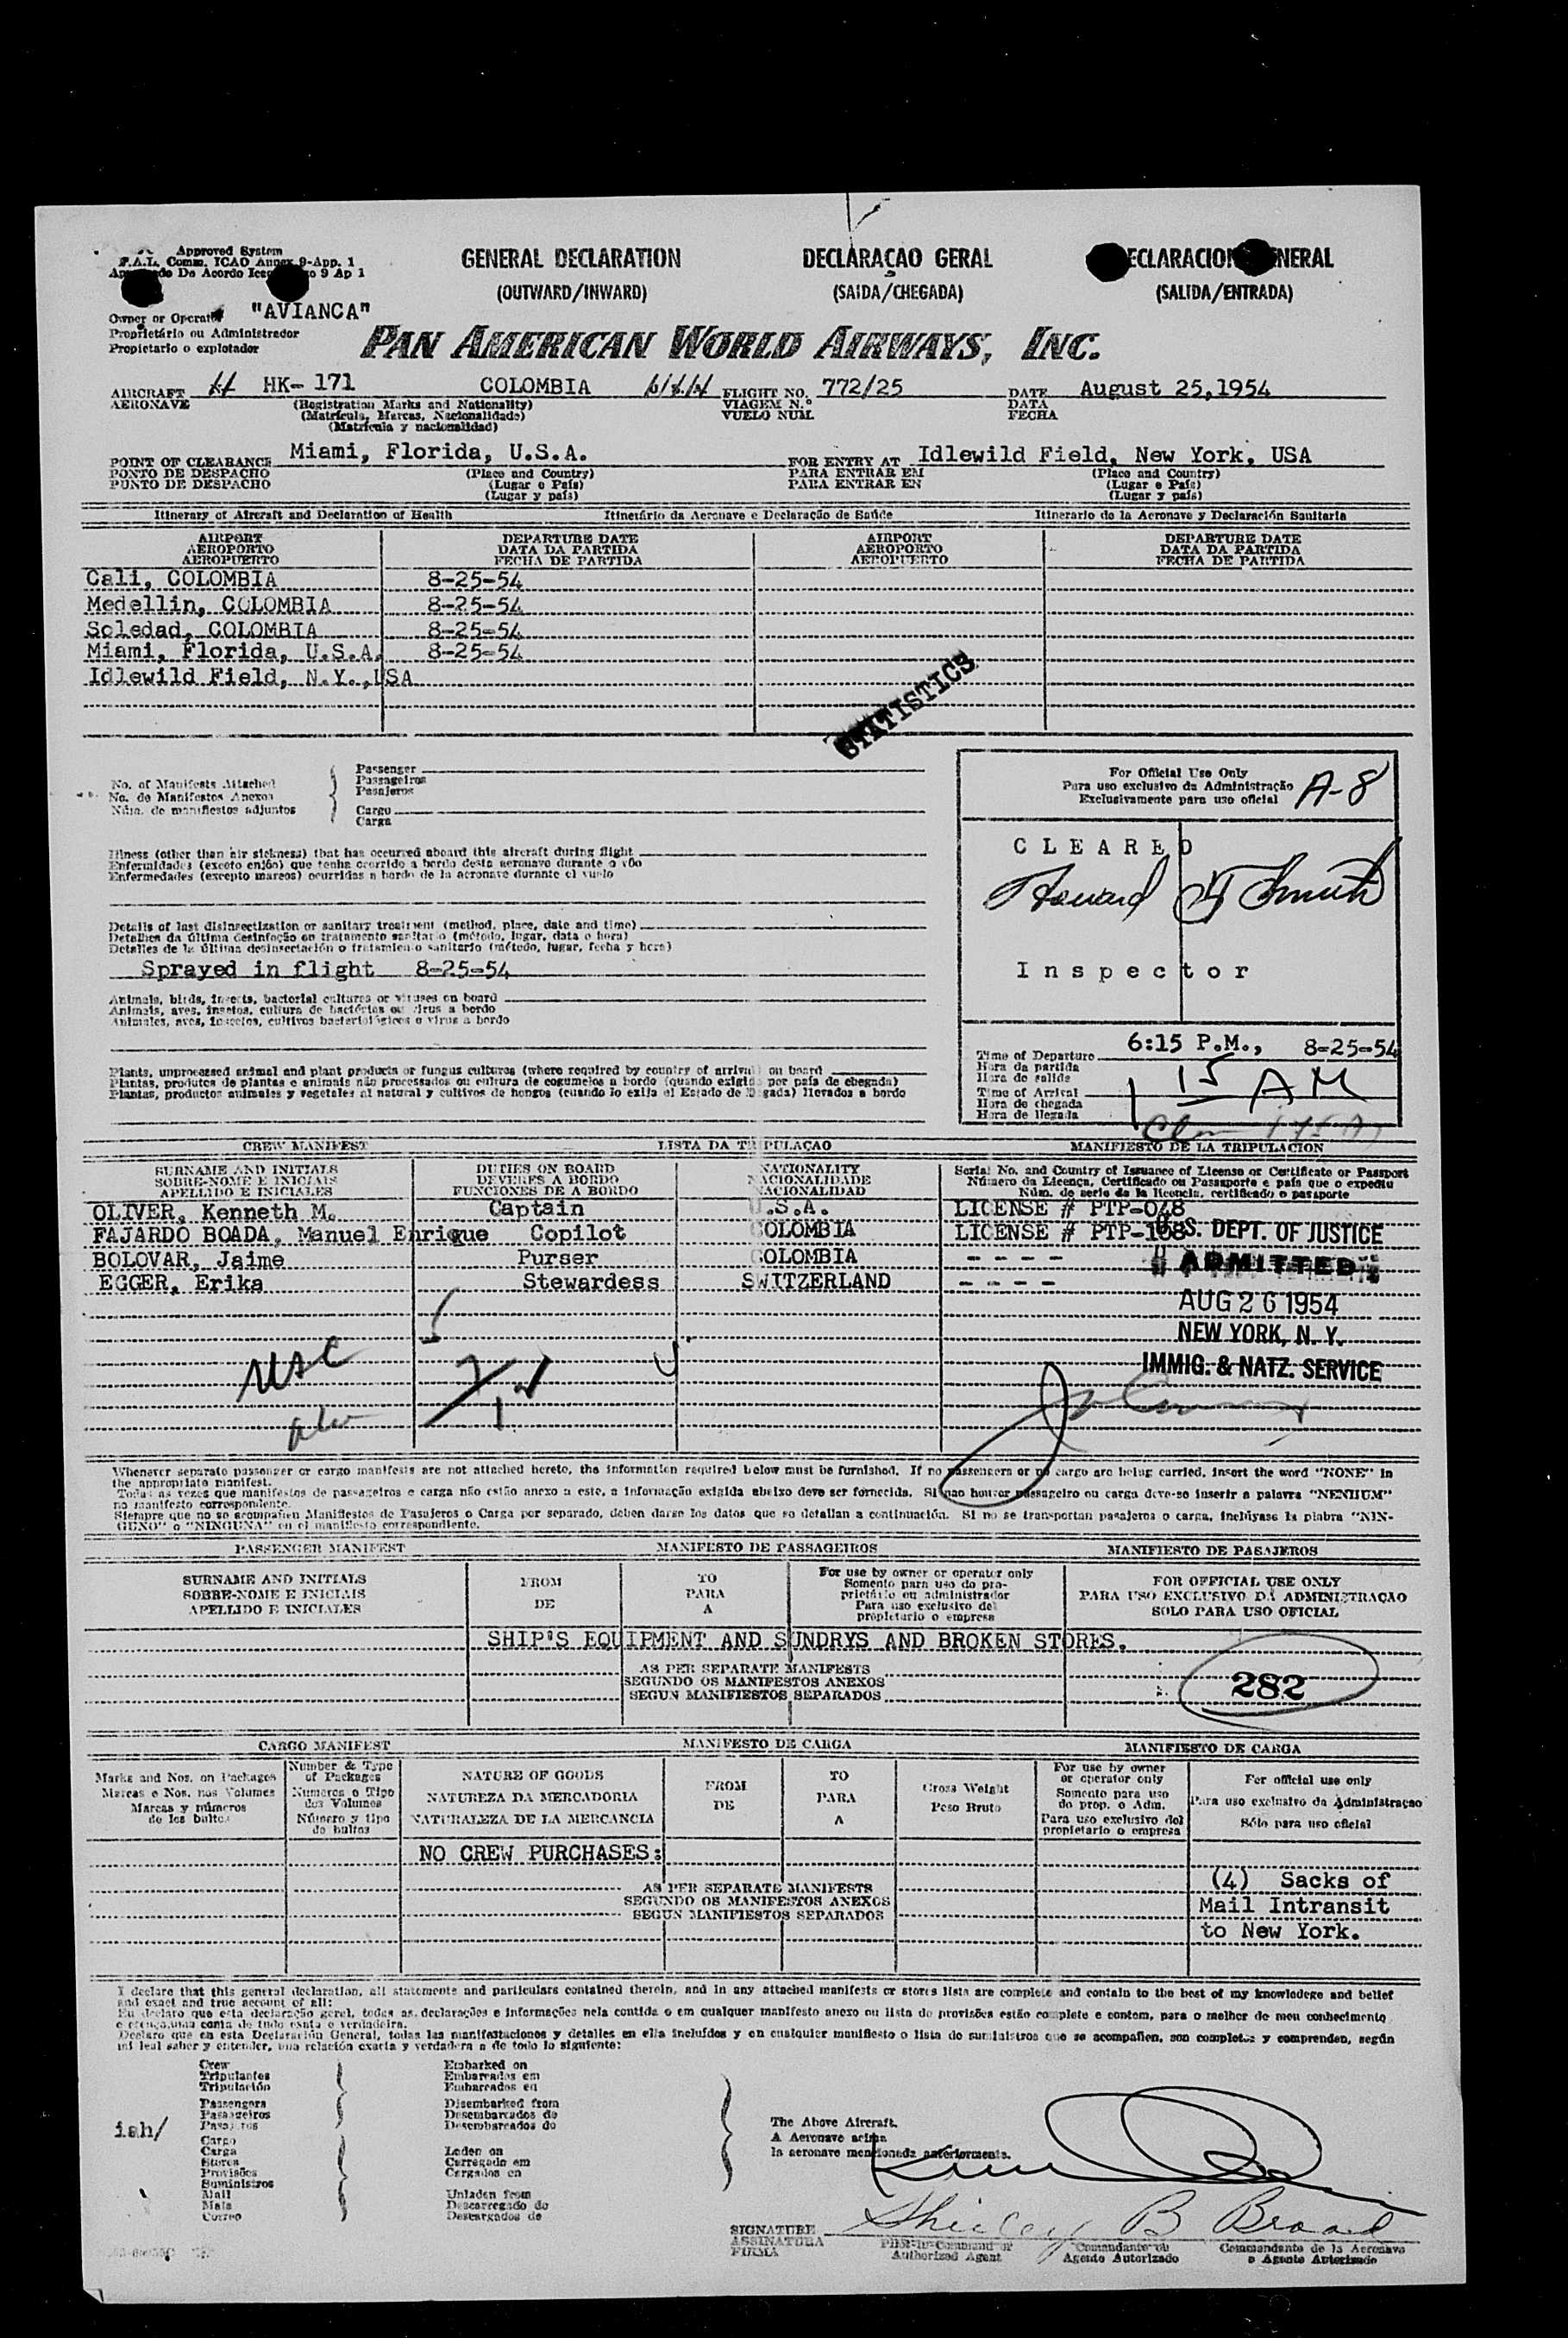 Approved System
F.A.L. Comm. ICAO Annex 9-App. 1
De Acordo 9 Ap 1
GENERAL DECLARATION
(OUTWARD/INWARD)
DECLARAÇAO GERAL
(SAIDA/CHEGADA)
ECLARACION NERAL
(SALIDA/ENTRADA)
Owner or Operator "AVIANCA"
Proprietário ou Administrador
Propietario o explotador
PAN AMERICAN WORLD AIRWAYS, INC.
AIRCRAFT HK-171 COLOMBIA FLIGHT NO. 772/25 DATE August 25,1954
AERONAVE (Registration Marks and Nationality) VIAGEM N.º DATA
(Matrícula, Marcas, Nacionalidade) VUELO NUM. FECHA
(Matrícula y nacionalidad)
POINT OF CLEARANCE Miami, Florida, U.S.A. FOR ENTRY AT Idlewild Field, New York, USA
PONTO DE DESPACHO (Place and Country) PARA ENTRAR EM (Place and Country)
PUNTO DE DESPACHO (Lugar e País) PARA ENTRAR EN (Lugar e País)
(Lugar y país) (Lugar y país)
Itinerary of Aircraft and Declaration of Health Itinerário da Aeronave e Declaração de Saúde Itinerario de la Aeronave y Declaración Sanitaria
AIRPORT DEPARTURE DATE AIRPORT DEPARTURE DATE
AEROPORTO DATA DA PARTIDA AEROPORTO DATA DA PARTIDA
AEROPUERTO FECHA DE PARTIDA AEROPUERTO FECHA DE PARTIDA
Cali, COLOMBIA 8-25-54
Medellin, COLOMBIA 8-25-54
Soledad, COLOMBIA 8-25-54
Miami, Florida, U.S.A. 8-25-54
Idlewild Field, N.Y.,USA
STATISTICS
No. of Manifests Attached
No. de Manifestos Anexos
Núm. de manifiestos adjuntos
Passenger
Passageiros
Pasajeros
Cargo
Carga
For Official Use Only
Para uso exclusivo da Administração
Exclusivamente para uso oficial
A-8
CLEARED
Howard Smith
Inspector
Illness (other than air sickness) that has occurred aboard this aircraft during flight
Enfermidades (exceto enjôo) que tenha ocorrido a bordo desta aeronave durante o vôo
Enfermedades (excepto mareos) ocurridas a bordo de la aeronave durante el vuelo
Details of last disinsectization or sanitary treatment (method, place, date and time)
Detalhes da última desinfeção ou tratamento sanitario (método, lugar, data e hora)
Detalles de la última desinsectación o tratamiento sanitario (método, lugar, fecha y hora)
Sprayed in flight 8-25-54
Animals, birds, insects, bacterial cultures or viruses on board
Animais, aves, insetos, cultura de bactérias ou virus a bordo
Animales, aves, insectos, cultivos bacteriológicos o virus a bordo
Plants, unprocessed animal and plant products or fungus cultures (where required by country of arrival) on board
Plantas, produtos de plantas e animais não processados ou cultura de cogumelos a bordo (quando exigido por país de chegada)
Plantas, productos animales y vegetales al natural y cultivos de hongos (cuando lo exija el Estado de llegada) llevados a bordo
Time of Departure 6:15 P.M., 8-25-54
Hora da partida
Hora de salida
Time of Arrival 15 AM
Hora de chegada
Hora de llegada
CREW MANIFEST LISTA DA TRIPULAÇAO MANIFIESTO DE LA TRIPULACION
SURNAME AND INITIALS DUTIES ON BOARD NATIONALITY Serial No. and Country of Issuance of License or Certificate or Passport
SOBRE-NOME E INICIAIS DEVERES A BORDO NACIONALIDADE Número da Licença, Certificado ou Passaporte e país que o expediu
APELLIDO E INICIALES FUNCIONES DE A BORDO NACIONALIDAD Núm. de serie de la licencia, certificado o pasaporte
OLIVER, Kenneth M. Captain U.S.A. LICENSE # PTP-048
FAJARDO BOADA, Manuel Enrique Copilot COLOMBIA LICENSE # PTP-108
BOLOVAR, Jaime Purser COLOMBIA - - - -
EGGER, Erika Stewardess SWITZERLAND - - - -
U.S. DEPT. OF JUSTICE
ADMITTED
AUG 26 1954
NEW YORK, N. Y.
IMMIG. & NATZ. SERVICE
USC
Whenever separate passenger or cargo manifests are not attached hereto, the information required below must be furnished. If no passengers or no cargo are being carried, insert the word "NONE" in
the appropriate manifest.
Todas as vezes que manifestos de passageiros e carga não estão anexo a este, a informação exigida abaixo deve ser fornecida. Si nao houver passageiro ou carga deve-se inserir a palavra "NENHUM"
no manifesto correspondente.
Siempre que no se acompañen Manifiestos de Pasajeros o Carga por separado, deben darse los datos que se detallan a continuación. Si no se transportan pasajeros o carga, inclúyase la plabra "NIN-
GUNO" o "NINGUNA" en el manifiesto correspondiente.
PASSENGER MANIFEST MANIFESTO DE PASSAGEIROS MANIFIESTO DE PASAJEROS
SURNAME AND INITIALS
SOBRE-NOME E INICIAIS
APELLIDO E INICIALES
FROM
DE
TO
PARA
A
For use by owner or operator only
Somente para uso do pro-
prietário ou administrador
Para uso exclusivo del
propietario o empresa
FOR OFFICIAL USE ONLY
PARA USO EXCLUSIVO DA ADMINISTRAÇAO
SOLO PARA USO OFICIAL
SHIP'S EQUIPMENT AND SUNDRYS AND BROKEN STORES.
AS PER SEPARATE MANIFESTS
SEGUNDO OS MANIFESTOS ANEXOS
SEGUN MANIFIESTOS SEPARADOS
282
CARGO MANIFEST MANIFESTO DE CARGA MANIFIESTO DE CARGA
Marks and Nos. on Packages
Marcas e Nos. nos Volumes
Marcas y números
de los bultos
Number & Type
of Packages
Numeros e Tipo
dos Volumes
Número y tipo
de bultos
NATURE OF GOODS
NATUREZA DA MERCADORIA
NATURALEZA DE LA MERCANCIA
FROM
DE
TO
PARA
A
Gross Weight
Peso Bruto
For use by owner
or operator only
Somente para uso
do prop. o Adm.
Para uso exclusivo del
propietario o empresa
For official use only
Para uso exclusivo da Administraçao
Sólo para uso oficial
NO CREW PURCHASES:
AS PER SEPARATE MANIFESTS
SEGUNDO OS MANIFESTOS ANEXOS
SEGUN MANIFIESTOS SEPARADOS
(4) Sacks of
Mail Intransit
to New York.
I declare that this general declaration, all statements and particulars contained therein, and in any attached manifests or stores lists are complete and contain to the best of my knowledge and belief
and exact and true account of all:
Eu declaro que esta declaração geral, todas as declarações e informações nela contida o em qualquer manifesto anexo ou lista de provisões estão complete e contem, para o melhor de meu conhecimento
e crença,uma conta de tudo exata e verdadeira.
Declaro que en esta Declaración General, todas las manifestaciones y detalles en ella incluídos y en cualquier manifiesto o lista de suministros que se acompañen, son completos y comprenden, según
mi leal saber y entender, una relación exacta y verdadera a de todo lo siguiente:
Crew
Tripulantes
Tripulación
Passengers
Passageiros
Pasajeros
Cargo
Carga
Stores
Provisões
Suministros
Mail
Mala
Correo
Embarked on
Embarcados em
Embarcados en
Disembarked from
Desembarcados de
Desembarcados de
Laden on
Carregado em
Cargados en
Unladen from
Descarregado de
Descargados de
ish/
The Above Aircraft.
A Aeronave acima
la aeronave mencionada anteriormente.
SIGNATURE Shirley B
ASSINATURA
FIRMA
Pilot-in-Command or
Authorized Agent
Comandante ou
Agente Autorizado
Commandante de la Aeronave
o Agente Autorizado